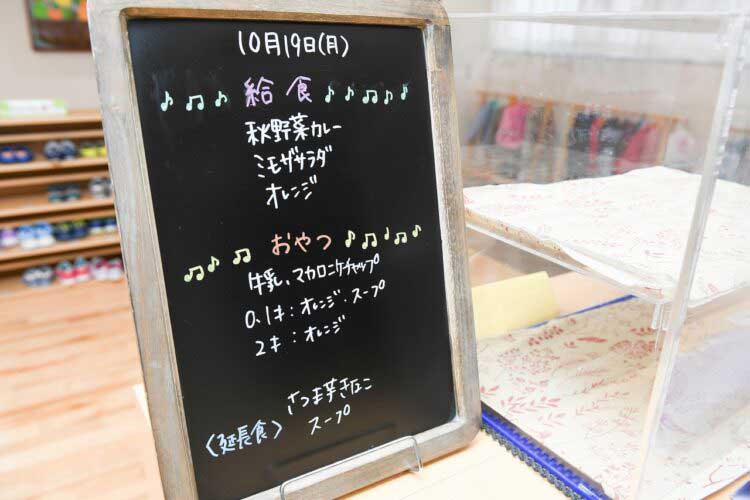 10月19日(月)
♪ ♫ ♪ 給食 ♪ ♪ ♫ ♪ ♪
秋野菜カレー
ミモザサラダ
オレンジ
♫ ♪ ♫ おやつ ♪ ♫ ♩ ♫ ♪
牛乳、マカロニケチャップ
0.1才:オレンジ・スープ
2才:オレンジ
さつま芋きなこ
〈延長食〉 スープ